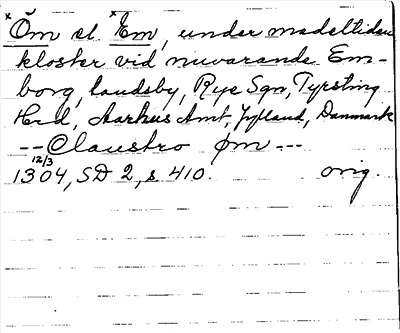 ˣÖm el. ˣEm, under medeltiden
kloster vid nuvarande Em-
borg, landsby, Rye Sgn, Tyrsting
Hrd, Aarhus Amt, Jylland, Danmark
--Claustro øm---
12/3
1304, SD 2, s 410. orig.